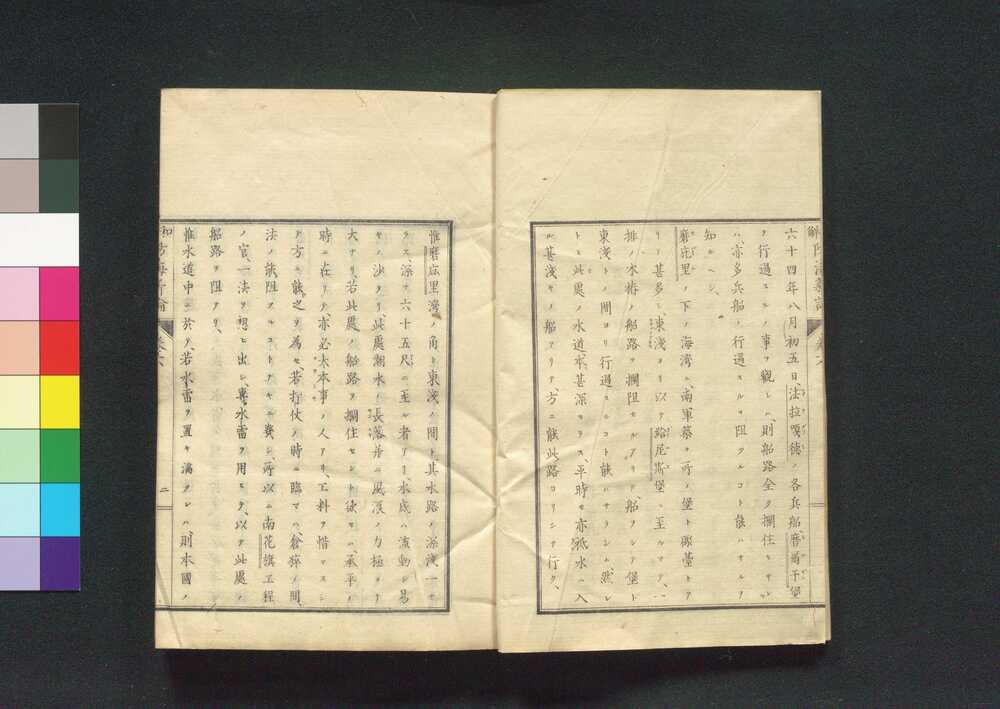 六十四年八月初五日、法拉嘎德ノ各兵船、磨爾干堡
ヲ行過スルノ事ヲ觀レハ、則船路全ク攔住セサレ
ハ、亦多兵船ノ行過スルヲ阻クルコト能ハサルヲ
知ルヘシ、
磨庇里ノ下ノ海湾ハ、南軍築ク所ノ堡ト礮臺トア
リテ甚多シ、東淺ヨリ以テ
排ノ木樁ノ船路ヲ攔阻セルアリテ、船ヲシテ堡ト
東淺トノ間ヨリ行過スルコト能ハサラシム、然レ
トモ此處ノ水道、本甚深カラス、平時モ亦祗水ニ入
ル甚淺キノ船アリテ、方ニ能此路ヨリシテ行ク、
惟磨庇里灣ノ角ト東淺ノ間ト、其水路ノ深淺一ナ
ラス、深サ六十五尺ニ至ル者アリ、水底ハ流動シ易
キノ沙タリ、此處潮水ノ長落并ニ風浪ノ力極メテ
大ナリ、若此處ノ船路ヲ攔住セント欲セハ、承平ノ
時ニ在リテモ、亦必大本事ノ人アリ、工料ヲ惜マスシ
テ方ニ能之ヲ為セ、若行仗ノ時ニ臨マハ、倉猝ノ間、
法ノ能阻スルコトアルナシ、所以ニ南花旗工程
ノ官、一法ヲ想ヒ出シ、專水雷ヲ用ヒテ、以テ此處ノ
船路ヲ阻テリ、
惟水道中ニ於テ、若水雷ヲ置キ滿タレハ、則本國ノ
二